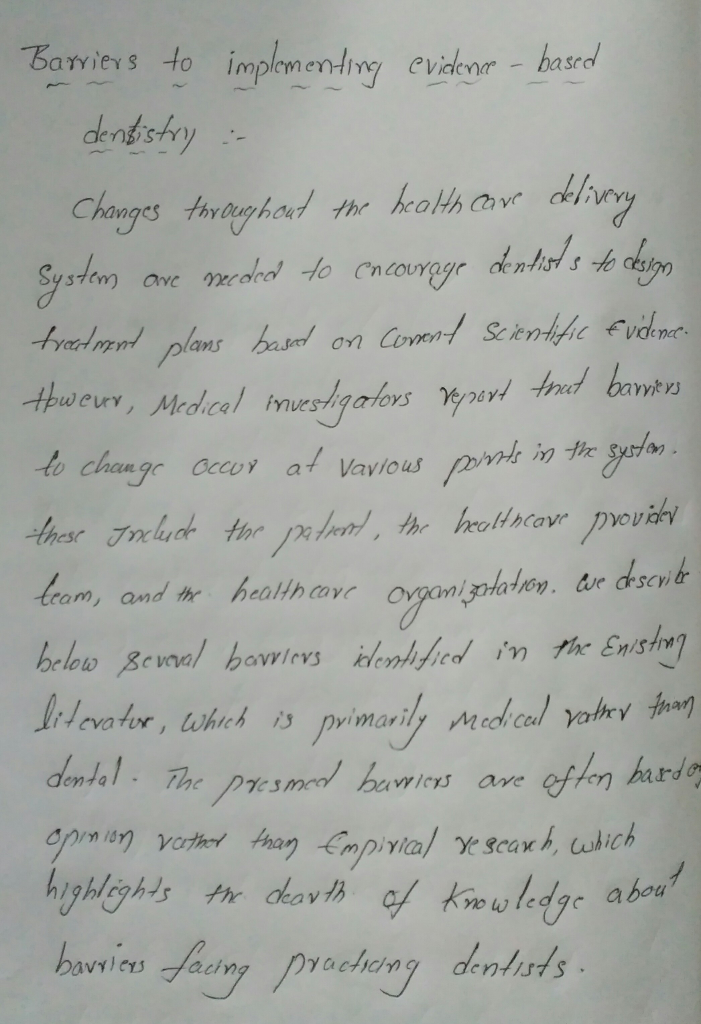 Barriers to implementing evidence - based
dentistry :-
Changes throughout the health care delivery
System are needed to encourage dentists to design
treatment plans based on Current Scientific Evidence.
However, Medical investigators report that barriers
to change occur at various points in the system.
these Include the patient, the healthcare provider
team, and the healthcare organizatation. We describe
below several barriers identified in the Enisting
literatur, which is primarily Medical rather than
dental. The presmed barriers are often based on
opinion rather than Empirical research, which
highlights the dearth of Knowledge about
barriers facing practicing dentists.